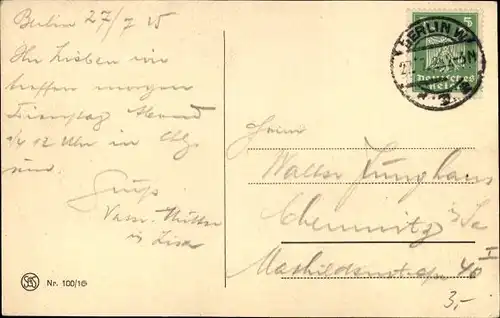 Berlin 27/7 25
Ihr Lieben wir
treffen morgen
Dienstag Abend
1/4 12 Uhr in Chg
ein
Gruß
Vater Mutter
u Lisa
Nr. 100/16
BERLIN W
5
Deutsches
Reich
Herrn
Walter Junghans
Chemnitz i/Sa
Mathildenstraße 40 I
3,-